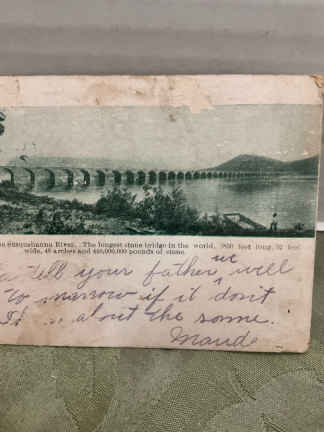 Susquehanna River. The longest stone bridge in the world, feet long, 52 feet
wide, 48 arches and 440,000,000 pounds of stone
tell your father we will
to morrow if it don't
is about the same.
Maude